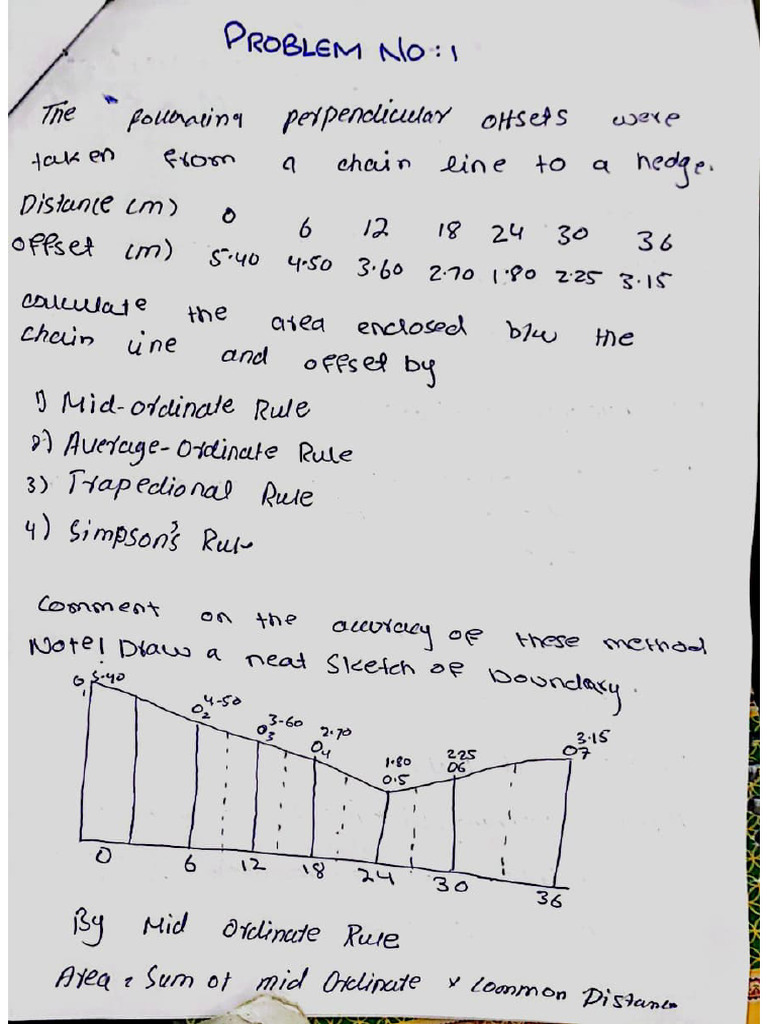 PROBLEM NO: 1
The following perpendicular offsets were
taken from a chain line to a hedge.
Distance (m) 0 6 12 18 24 30 36
offset (m) 5.40 4.50 3.60 2.70 1.80 2.25 3.15
calculate the area enclosed b/w the
chain line and offset by
1) Mid-ordinate Rule
2) Average-Ordinate Rule
3) Trapedional Rule
4) Simpson's Rule
Comment on the accuracy of these method
Note! Draw a neat Sketch of boundary.
O1 5.40
4.50
O2
3-60
O3
2.70
O4
1.80
0.5
225
O6
3.15
O7
0 6 12 18 24 30 36
By Mid Ordinate Rule
Area = Sum of mid Ordinate × Common Distance